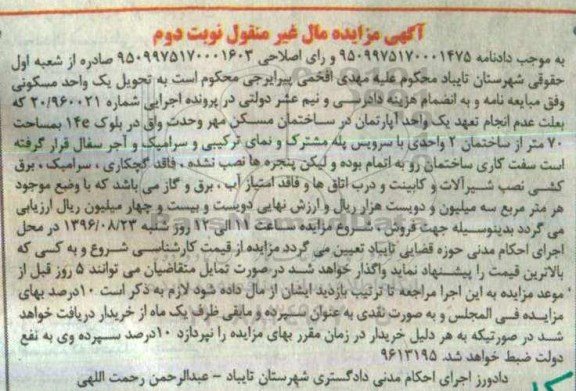 آگهی مزایده مال غیر منقول نوبت دوم
به موجب دادنامه ۹۵۰۹۹۷۵۱۷۰۰۰۱۴۷۵ و رای اصلاحی ۹۵۰۹۹۷۵۱۷۰۰۰۱۶۰۳ صادره از شعبه اول
حقوقی شهرستان تایباد محکوم علیه مهدی افخمی پیرایرجی محکوم است به تحویل یک واحد مسکونی
وفق مبایعه نامه و به انضمام هزینه دادرسی و نیم عشر دولتی در پرونده اجرایی شماره ۲۰/۹۶۰۰۲۱ که
بعلت عدم انجام تعهد یک واحد آپارتمان در ساختمان مسکن مهر وحدت واق در بلوک ۱۴e بمساحت
۷۰ متر از ساختمان ۲ واحدی با سرویس پله مشترک و نمای ترکیبی و سرامیک و آجر سفال قرار گرفته
است سفت کاری ساختمان رو به اتمام بوده و لیکن پنجره ها نصب نشده ، فاقد گچکاری ، سرامیک ، برق
کشی نصب شیرآلات و کابینت و درب اتاق ها و فاقد امتیاز آب ، برق و گاز می باشد که با وضع موجود
هر متر مربع سه میلیون و دویست هزار ریال و ارزش نهایی دویست و بیست و چهار میلیون ریال ارزیابی
می گردد بدینوسیله جهت فروش ، شروع مزایده ساعت ۱۱ الی ۱۲ روز شنبه ۱۳۹۶/۰۸/۲۳ در محل
اجرای احکام مدنی حوزه قضایی تایباد تعیین می گردد مزایده از قیمت کارشناسی شروع و به کسی که
بالاترین قیمت را پیشنهاد نماید واگذار خواهد شد در صورت تمایل متقاضیان می توانند ۵ روز قبل از
موعد مزایده به این اجرا مراجعه تا ترتیب بازدید ایشان از مال داده شود لازم به ذکر است ۱۰درصد بهای
مزایده فی المجلس و به صورت نقدی به عنوان سپرده و مابقی ظرف یک ماه از خریدار دریافت خواهد
شد در صورتیکه به هر دلیل خریدار در زمان مقرر بهای مزایده را نپردازد ۱۰درصد سپرده وی به نفع
دولت ضبط خواهد شد. ۹۶۱۳۱۹۵
دادورز اجرای احکام مدنی دادگستری شهرستان تایباد - عبدالرحمن رحمت اللهی